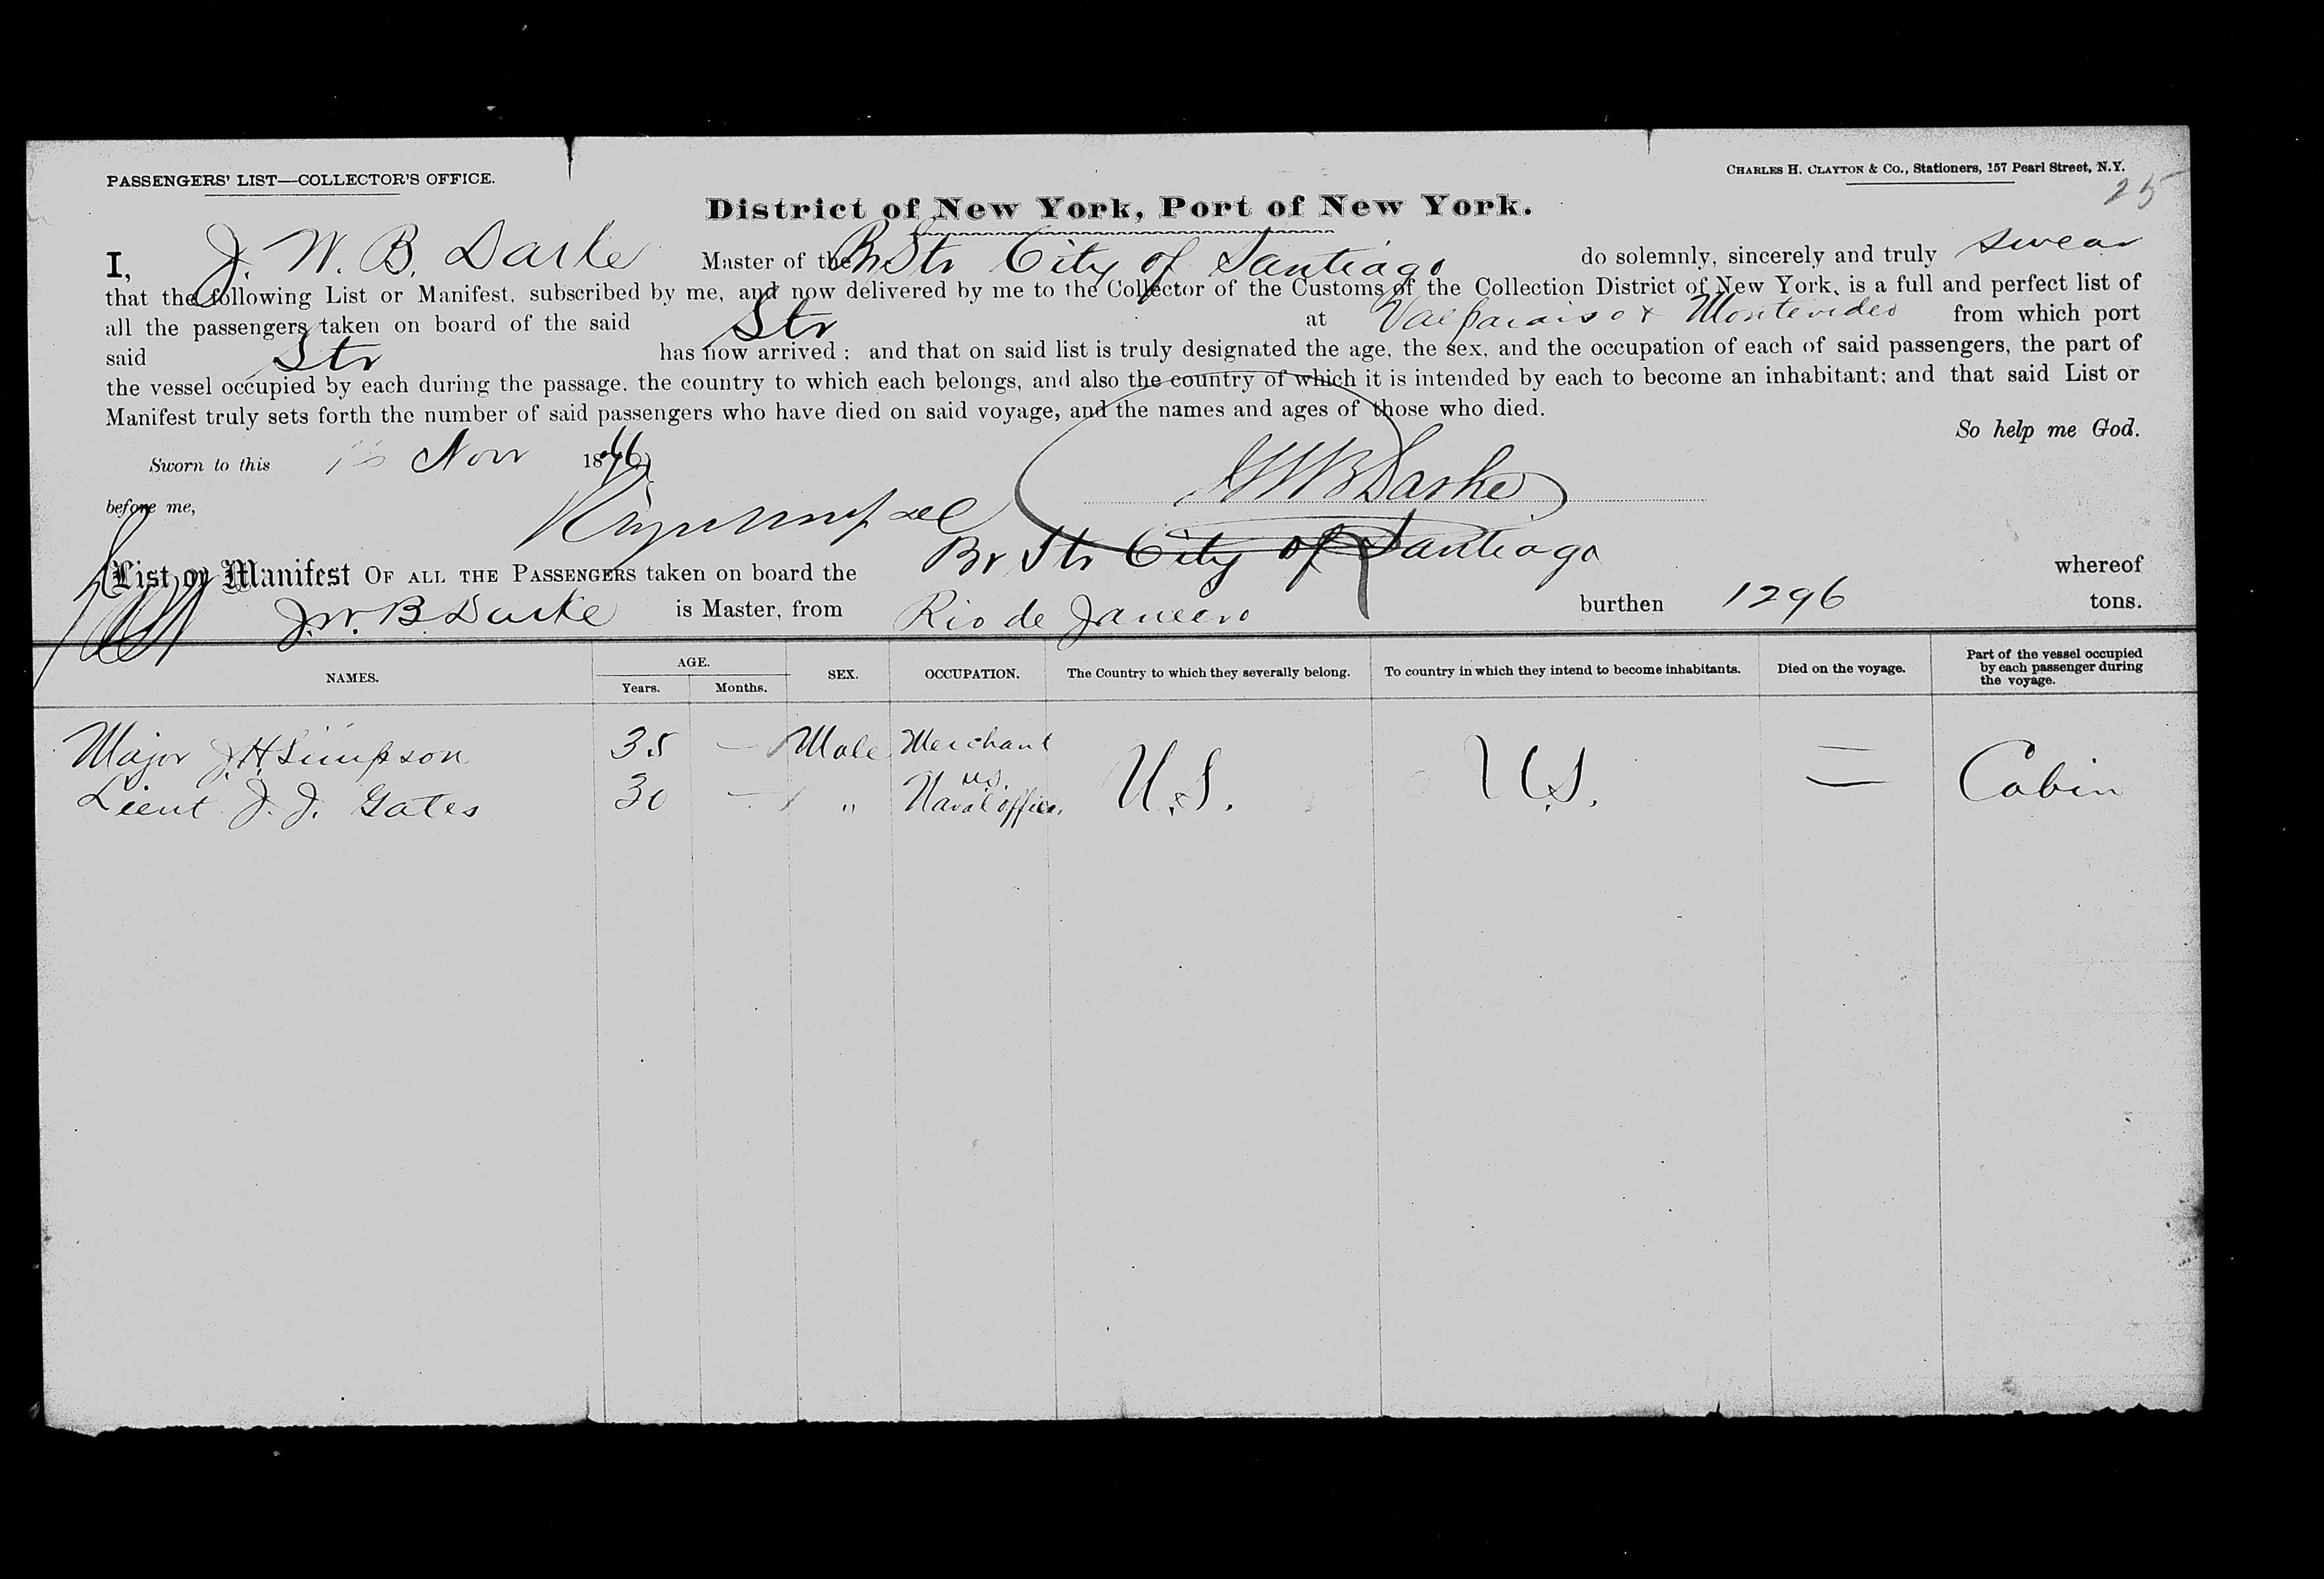 PASSENGERS' LIST—COLLECTOR'S OFFICE.
CHARLES H. CLAYTON & Co., Stationers, 157 Pearl Street, N.Y.
25
District of New York, Port of New York.
I, J. W. B. Darke Master of the Br Str City of Santiago do solemnly, sincerely and truly swear
that the following List or Manifest, subscribed by me, and now delivered by me to the Collector of the Customs of the Collection District of New York, is a full and perfect list of
all the passengers taken on board of the said Str at Valparaiso & Montevideo from which port
said Str has now arrived; and that on said list is truly designated the age, the sex, and the occupation of each of said passengers, the part of
the vessel occupied by each during the passage, the country to which each belongs, and also the country of which it is intended by each to become an inhabitant; and that said List or
Manifest truly sets forth the number of said passengers who have died on said voyage, and the names and ages of those who died.
So help me God.
Sworn to this Nov 18
before me,
JWB Darke
List or Manifest OF ALL THE PASSENGERS taken on board the Br Str City of Santiago whereof
J.W. B Darke is Master, from Rio de Janeero burthen 1296 tons.
NAMES. AGE. Years. Months. SEX. OCCUPATION. The Country to which they severally belong. To country in which they intend to become inhabitants. Died on the voyage. Part of the vessel occupied by each passenger during the voyage.
Major J. H. Simpson 35 — Male Merchant
Lieut J. J. Gates 30 — " U.S. Naval officer. U.S. U.S. = Cabin